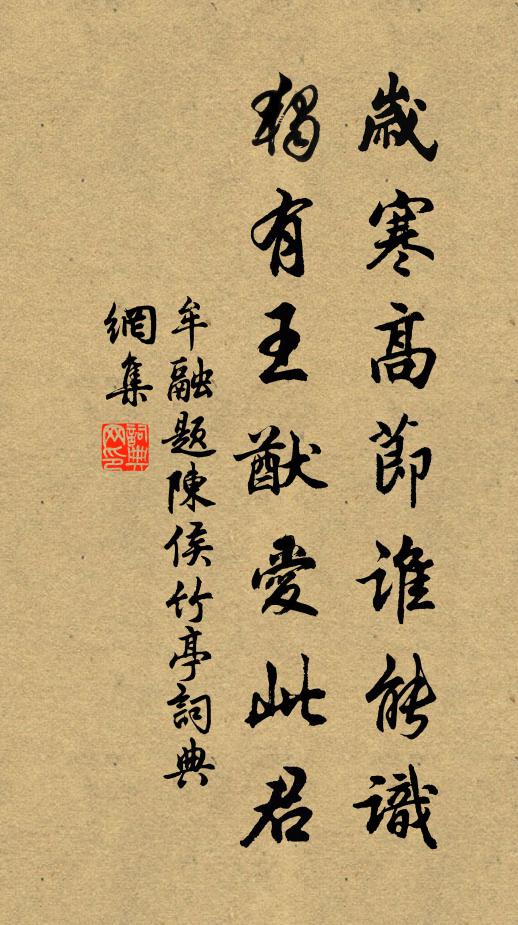 歲寒高節誰能識
獨有王猷愛此君
牟融題陳侯竹亭詞典
網集
詞典
网印